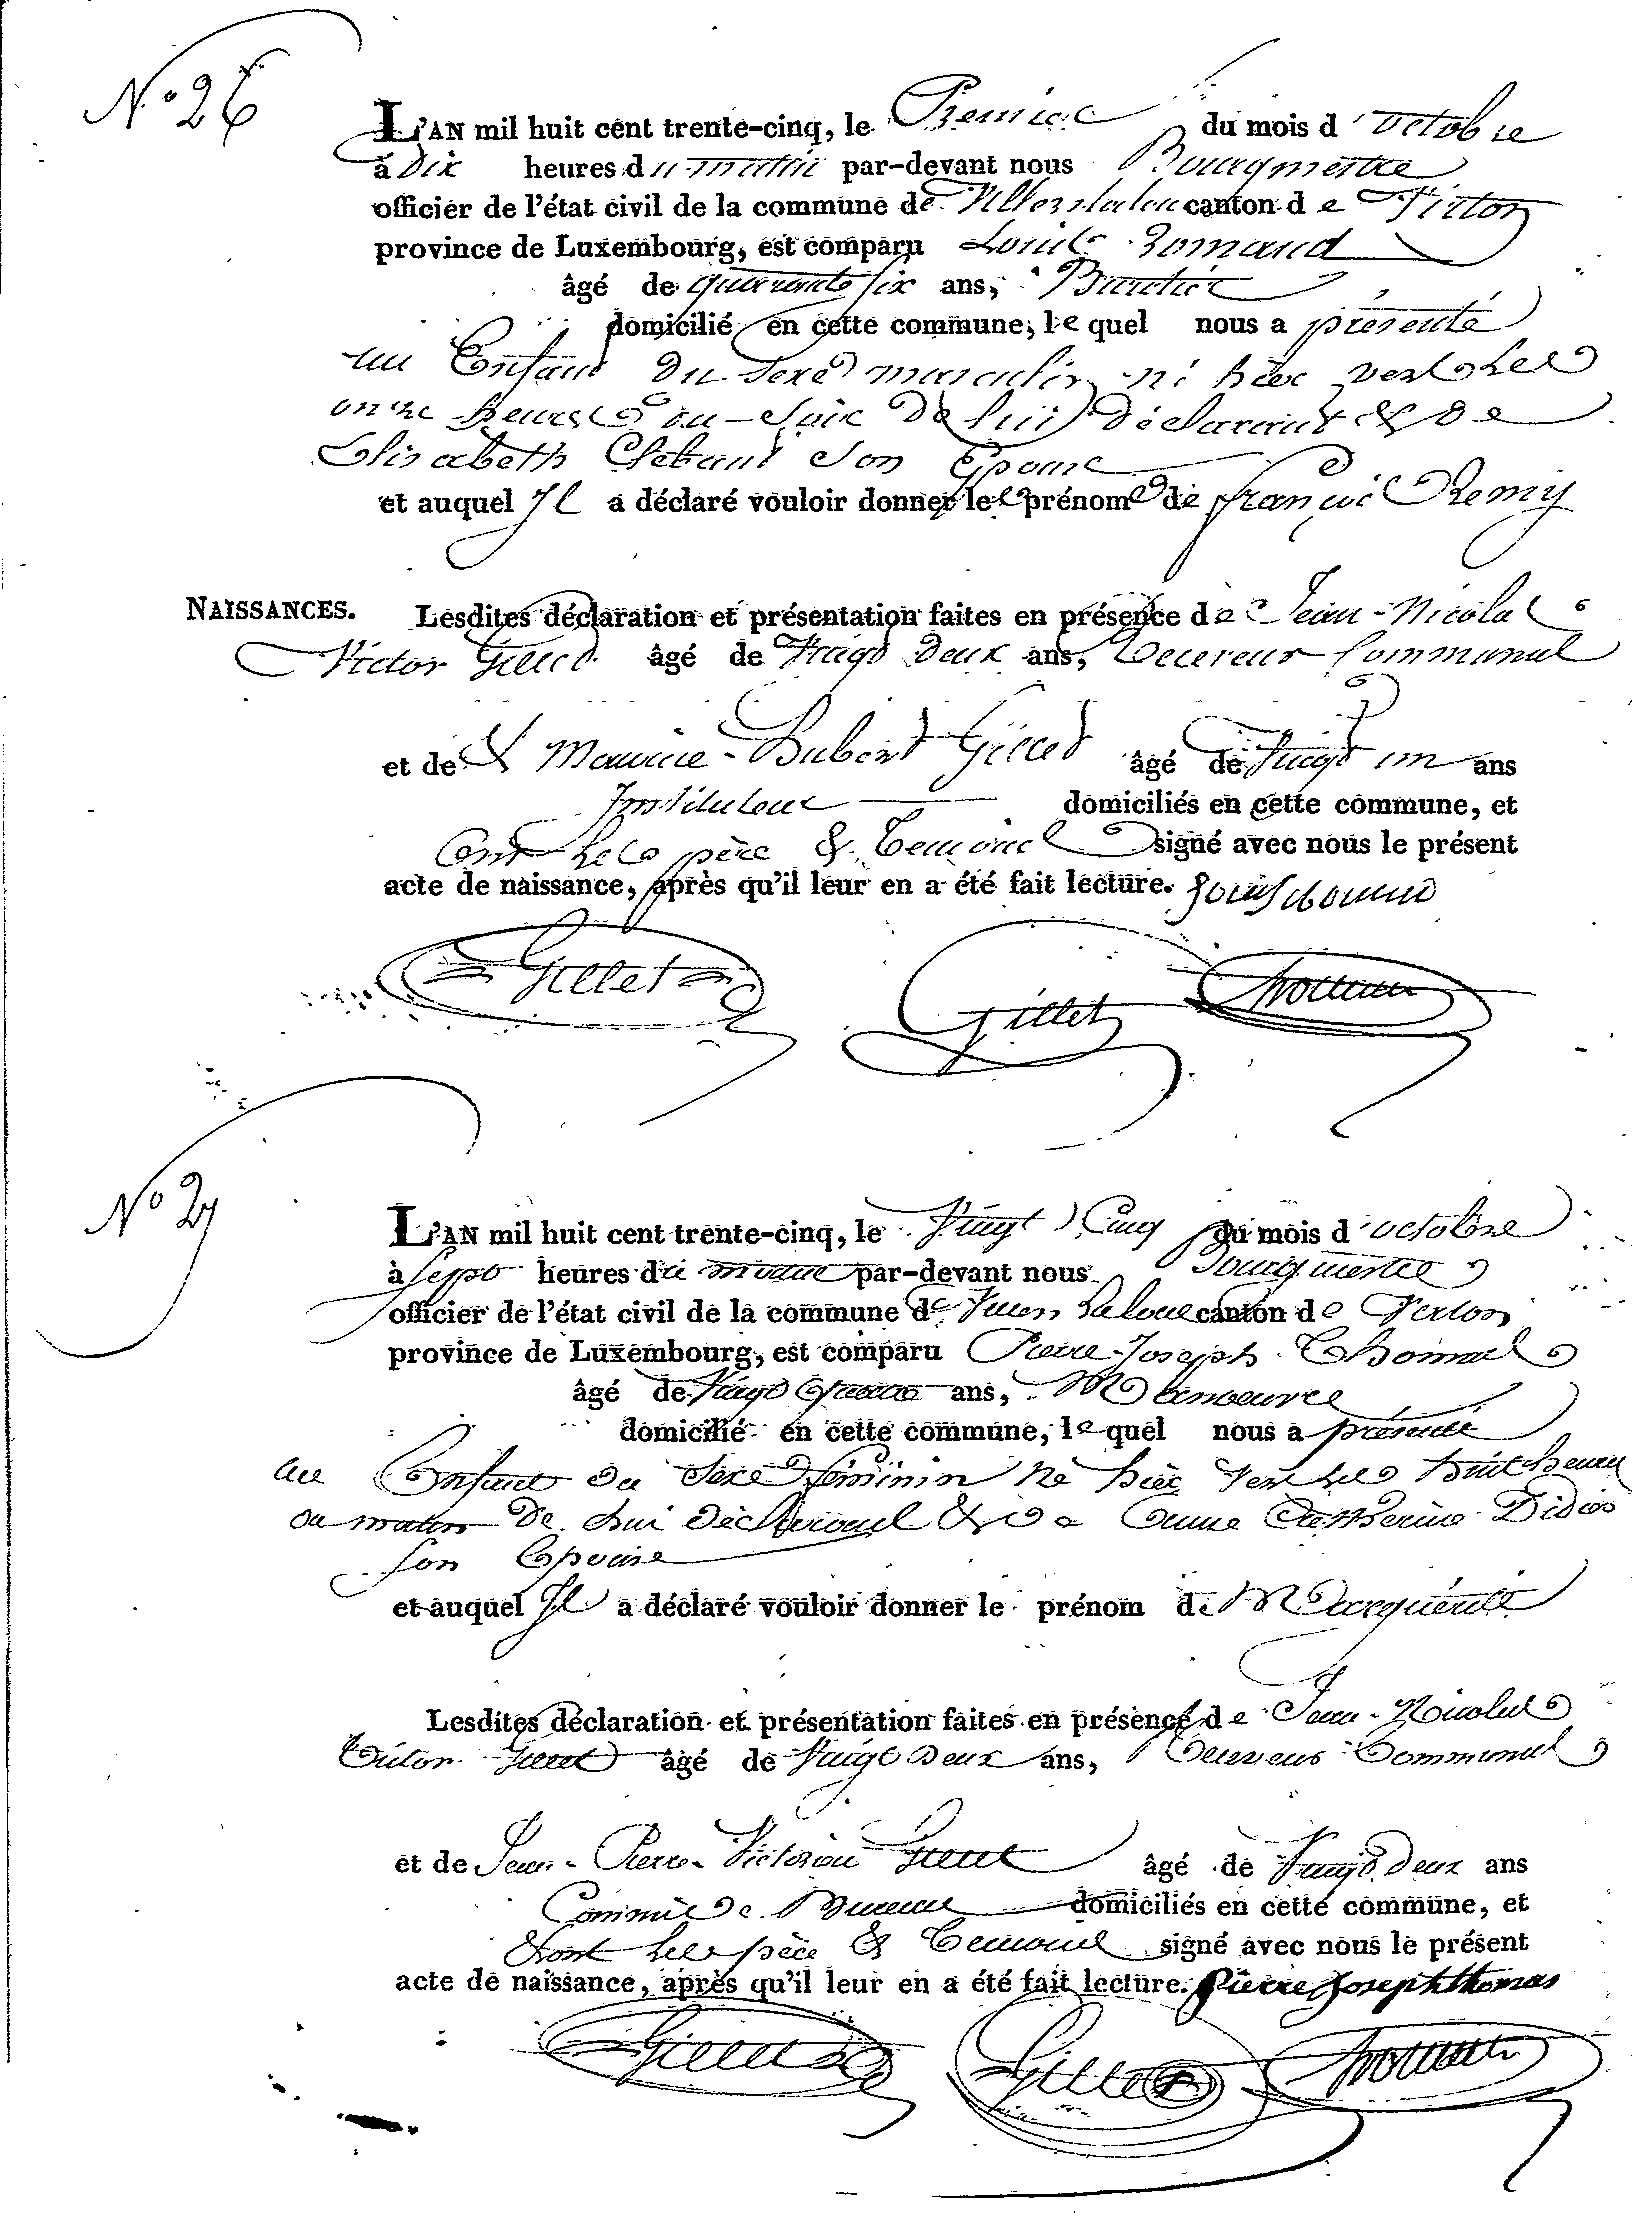 N° 26
L'AN mil huit cent trente-cinq, le Premier du mois d'octobre
à Dix heures du matin par-devant nous Bourgmestre
officier de l'état civil de la commune de canton de Virton
province de Luxembourg, est comparu Louis
âgé de quarante six ans,
domicilié en cette commune, le quel nous a présenté
un Enfant du Sexe masculin né hier vers les
onze heures du Soir de lui déclarant & de
Elisabeth son Epouse
et auquel Il a déclaré vouloir donner les prénoms de François Remy
NAISSANCES.
Lesdites déclaration et présentation faites en présence de Jean-Nicolas
Victor Gillet âgé de Vingt Deux ans, Receveur Communal
et de Maurice-Hubert Gillet âgé de Vingt un ans
Instituteur domiciliés en cette commune, et
Ont Les père & Témoins signé avec nous le présent
acte de naissance, après qu'il leur en a été fait lecture.
Gillet Gillet
N° 27
L'AN mil huit cent trente-cinq, le Vingt Cinq du mois d'octobre
à Sept heures du matin par-devant nous Bourgmestre
officier de l'état civil de la commune de canton de Virton
province de Luxembourg, est comparu Pierre-Joseph Thomas
âgé de Vingt Quatre ans, Manoeuvre
domicilié en cette commune, le quel nous a présenté
un Enfant du Sexe féminin né hier vers les huit heures
du matin de Lui déclarant & de Anne Catherine Didier
son Epouse
et auquel Il a déclaré vouloir donner le prénom de Marguerite
Lesdites déclaration et présentation faites en présence de Jean-Nicolas
Victor Gillet âgé de Vingt Deux ans, Receveur Communal
et de Jean-Pierre-Victorien Gillet âgé de Vingt Deux ans
Commis de Bureau domiciliés en cette commune, et
Ont Les père & Témoins signé avec nous le présent
acte de naissance, après qu'il leur en a été fait lecture. Pierre Joseph thomas
Gillet Gillet